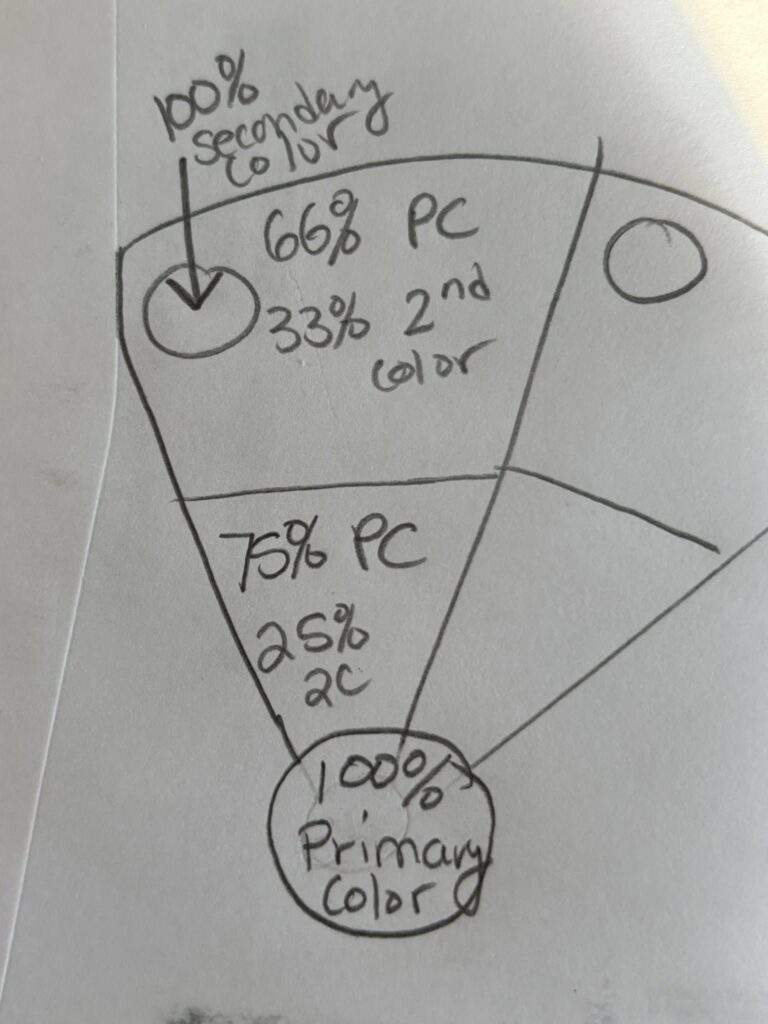 100%
secondary
color
66% PC
33% 2nd
color
75% PC
25%
2C
100%
Primary
Color